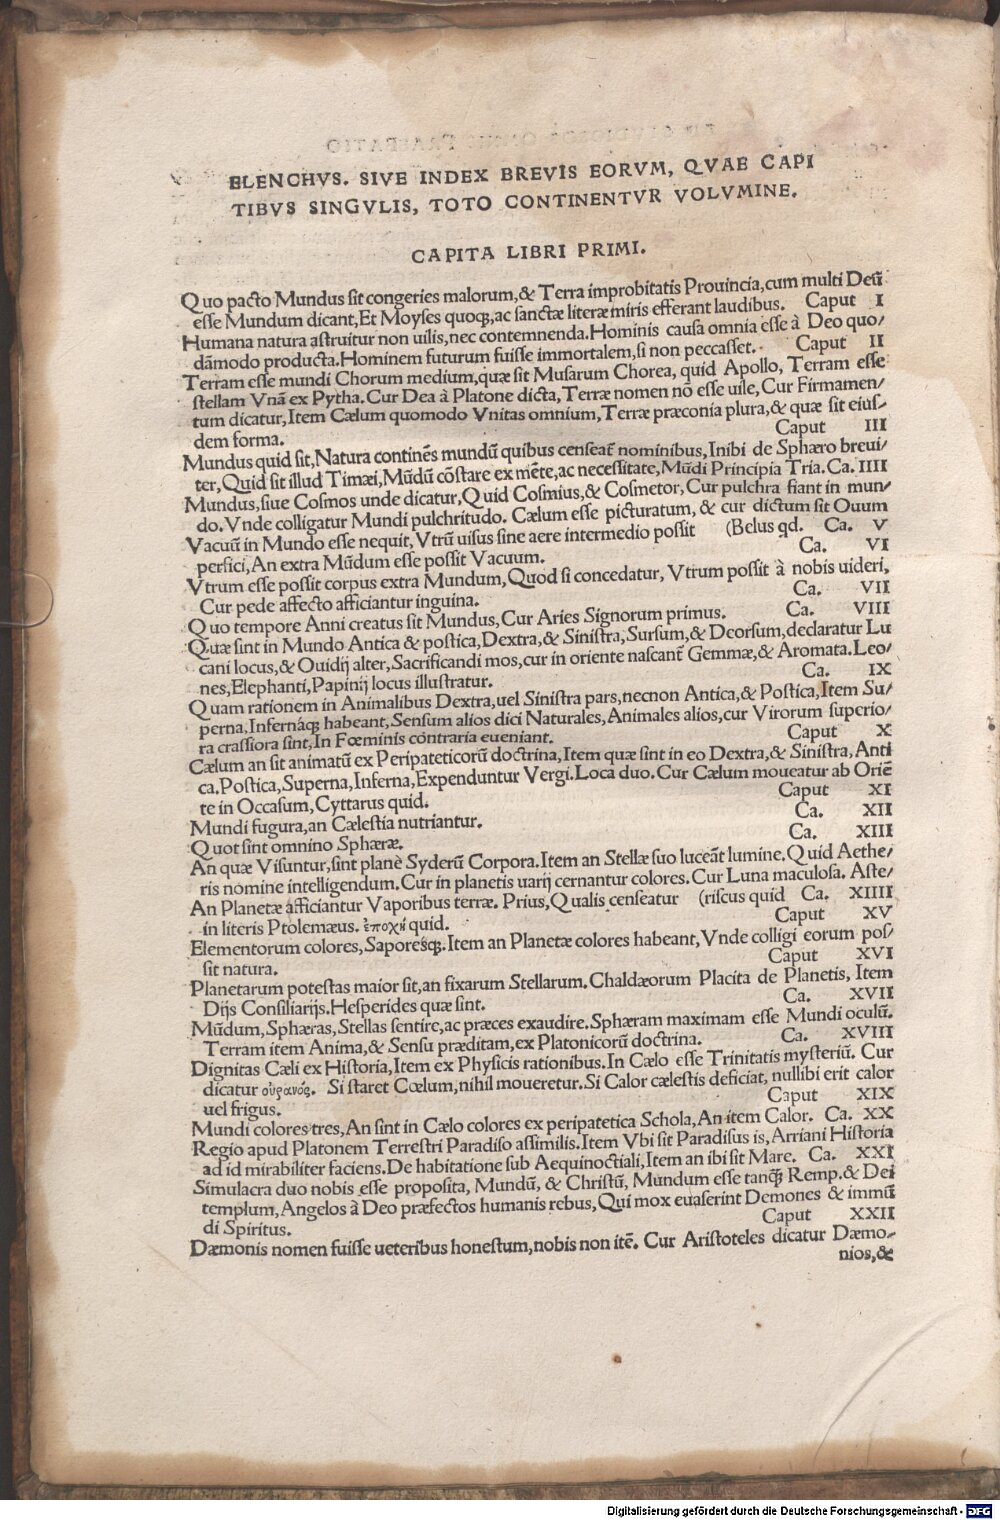 ELENCHVS. SIVE INDEX BREVIS EORVM, QVAE CAPI
TIBVS SINGVLIS, TOTO CONTINENTVR VOLVMINE.
CAPITA LIBRI PRIMI.
Quo pacto Mundus ſit congeries malorum,& Terra improbitatis Prouincia,cum multi Deũ
eſſe Mundum dicant,Et Moyſes quoqꝫ,ac ſanctæ literæ miris efferant laudibus. Caput I
Humana natura aſtruitur non uilis,nec contemnenda.Hominis cauſa omnia eſſe à Deo quo/
dãmodo producta.Hominem futurum fuiſſe immortalem,ſi non peccaſſet. Caput II
Terram eſſe mundi Chorum medium,quæ ſit Muſarum Chorea, quid Apollo, Terram eſſe
ſtellam Vnã ex Pytha.Cur Dea à Platone dicta,Terræ nomen nõ eſſe uile,Cur Firmamen/
tum dicatur,Item Cælum quomodo Vnitas omnium,Terræ præconia plura,& quæ ſit eiuſ-
dem forma. Caput III
Mundus quid ſit,Natura continẽs mundũ quibus cenſeat̃ nominibus,Inibi de Sphæro breui/
ter,Quid ſit illud Timæi,Mũdũ cõſtare ex mẽte,ac neceſſitate,Mũdi Principia Tria.Ca.IIII
Mundus,ſiue Coſmos unde dicatur,Quid Coſmius,& Coſmetor,Cur pulchra fiant in mun/
do.Vnde colligatur Mundi pulchritudo. Cælum eſſe picturatum, & cur dictum ſit Ouum
Vacuũ in Mundo eſſe nequit,Vtrũ uiſus ſine aere intermedio poſſit (Belus qd. Ca. V
perſici,An extra Mũdum eſſe poſſit Vacuum. Ca. VI
Vtrum eſſe poſſit corpus extra Mundum,Quod ſi concedatur, Vtrum poſſit à nobis uideri,
Cur pede affecto afficiantur inguina. Ca. VII
Quo tempore Anni creatus ſit Mundus,Cur Aries Signorum primus. Ca. VIII
Quæ ſint in Mundo Antica & poſtica,Dextra,& Siniſtra,Surſum,& Deorſum,declaratur Lu
cani locus,& Ouidĳ alter,Sacrificandi mos,cur in oriente naſcant̃ Gemmæ,& Aromata.Leo/
nes,Elephanti,Papinĳ locus illuſtratur. Ca. IX
Quam rationem in Animalibus Dextra,uel Siniſtra pars,necnon Antica,& Poſtica,Item Su/
perna,Infernáqꝫ habeant,Senſum alios dici Naturales,Animales alios,cur Virorum ſuperio/
ra craſſiora ſint,In Fœminis contraria eueniant. Caput X
Cælum an ſit animatũ ex Peripateticorũ doctrina,Item quæ ſint in eo Dextra,& Siniſtra,Anti
ca.Poſtica,Superna,Inferna,Expenduntur Vergi.Loca duo.Cur Cælum moueatur ab Oriẽ
te in Occaſum,Cyttarus quid. Caput XI
Mundi fugura,an Cæleſtia nutriantur. Ca. XII
Quot ſint omnino Sphæræ. Ca. XIII
An quæ Viſuntur,ſint planè Syderũ Corpora.Item an Stellæ ſuo luceãt lumine.Quid Aethe/
ris nomine intelligendum.Cur in planetis uarĳ cernantur colores.Cur Luna maculoſa. Aſte/
An Planetæ afficiantur Vaporibus terræ. Prius,Qualis cenſeatur (riſcus quid Ca. XIIII
in literis Ptolemæus. ἐποχὴ quid. Caput XV
Elementorum colores,Saporeſqꝫ.Item an Planetæ colores habeant,Vnde colligi eorum poſ/
ſit natura. Caput XVI
Planetarum poteſtas maior ſit,an fixarum Stellarum.Chaldæorum Placita de Planetis, Item
Dĳs Conſiliarĳs.Heſperides quæ ſint. Ca. XVII
Mũdum,Sphæras,Stellas ſentire,ac præces exaudire.Sphæram maximam eſſe Mundi oculũ.
Terram item Anima,& Senſu præditam,ex Platonicorũ doctrina. Ca. XVIII
Dignitas Cæli ex Hiſtoria,Item ex Phyſicis rationibus.In Cælo eſſe Trinitatis myſteriũ. Cur
dicatur οὐρανός. Si ſtaret Cœlum,nihil moueretur.Si Calor cæleſtis deficiat, nullibi erit calor
uel frigus. Caput XIX
Mundi colores tres,An ſint in Cælo colores ex peripatetica Schola,An item Calor. Ca. XX
Regio apud Platonem Terreſtri Paradiſo aſſimilis.Item Vbi ſit Paradiſus is,Arriani Hiſtoria
ad id mirabiliter faciens.De habitatione ſub Aequinoctiali,Item an ibi ſit Mare. Ca. XXI
Simulacra duo nobis eſſe propoſita, Mundũ, & Chriſtũ, Mundum eſſe tanqꝫ̃ Remp.& Dei
templum,Angelos à Deo præfectos humanis rebus,Qui mox euaſerint Demones & immũ
di Spiritus. Caput XXII
Dæmonis nomen fuiſſe ueteribus honeſtum,nobis non itẽ. Cur Ariſtoteles dicatur Dæmo-
nios,&
Digitalisierung gefördert durch die Deutsche Forschungsgemeinschaft - DFG